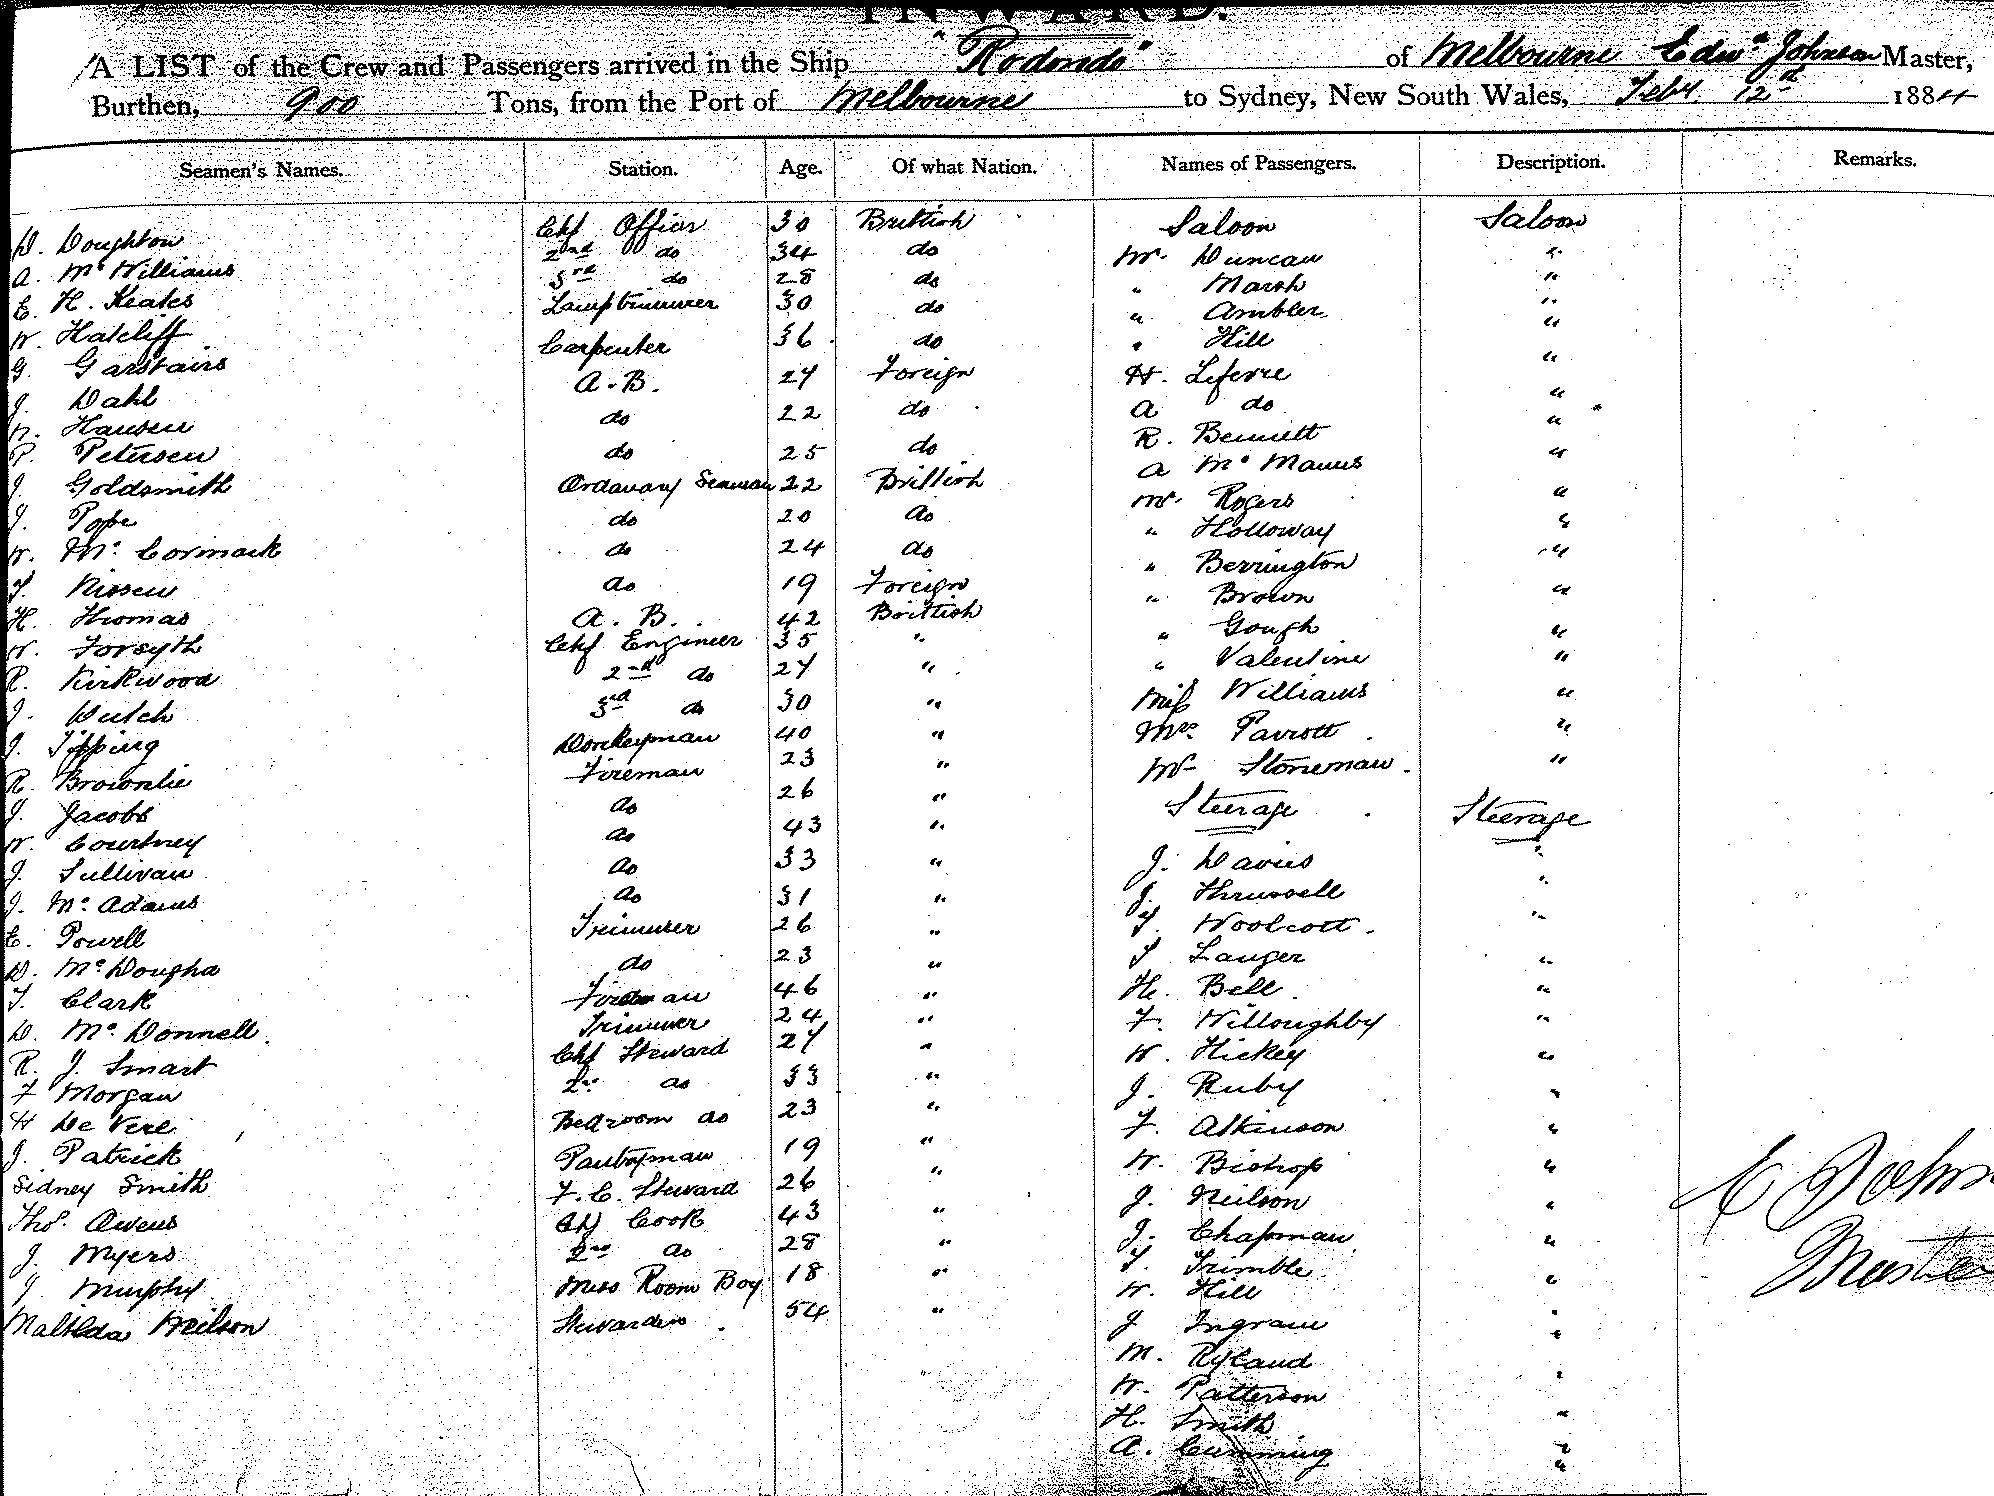 INWARD.
A LIST of the Crew and Passengers arrived in the Ship "Rodondo" of Melbourne Edwd Johnson Master,
Burthen, 900 Tons, from the Port of Melbourne to Sydney, New South Wales, Feby. 12th 1884
Seamen's Names. Station. Age. Of what Nation. Names of Passengers. Description. Remarks.
D. Doughton Chf Officer 30 Brittish Saloon Saloon
A. Mc Williams 2nd do 34 do Mr. Duncan "
E. H. Keates 3rd do 28 do " Marsh "
W. Hatcliff Lamptrimmer 30 do " Ambler "
G. Garstairs Carpenter 36 do " Hill "
J. Dahl A.B. 27 Foreign H. Lefevre "
N. Hansen do 22 do A do "
P. Petersen do 25 do R. Bennett "
J. Goldsmith Ordanary Seaman 22 Brittish A Mc Manus "
J. Pope do 20 do Mr. Rogers "
W. Mc Cormack do 24 do " Holloway "
T. Nissen do 19 Foreign " Berrington "
H. Thomas A. B. 42 Brittish " Brown "
W. Forsyth Chf Engineer 35 " " Gough "
R. Kirkwood 2nd do 27 " " Valentine "
J. Dutch 3rd do 30 " Miss Williams "
J. Tipping Donkeyman 40 " Mrs. Parrott "
R. Brownlie Fireman 23 " Mr Stoneman "
J. Jacobs do 26 " Steerage Steerage
W. Courtney do 43 " J. Davies "
J. Sullivan do 33 " J. Thrussell "
J. Mc Adams do 31 " T. Woolcott "
E. Powell Trimmer 26 " S Langer "
D. Mc Dougha do 23 " H. Bell "
T. Clark Fireman 46 " F. Willoughby "
D. Mc Donnell Trimmer 24 " W. Hickey "
R. J. Smart Chf Steward 27 " J. Ruby "
F Morgan 2nd do 33 " F. Atkinson "
H De Vere Bedroom do 23 " W. Bishop "
J. Patrick Pantryman 19 " J. Neilson "
Sidney Smith F. C. Steward 26 " J. Chapman "
Thos. Owens Chf Cook 43 " T. Trimble "
J. Myers 2nd do 28 " W. Hill "
J Murphy Mess Room Boy 18 " J Ingram "
Matilda Neilson Stewardess 54 " M. Ryland "
W. Patterson "
H. Smith "
A. Cumming "
E Johns
Maste